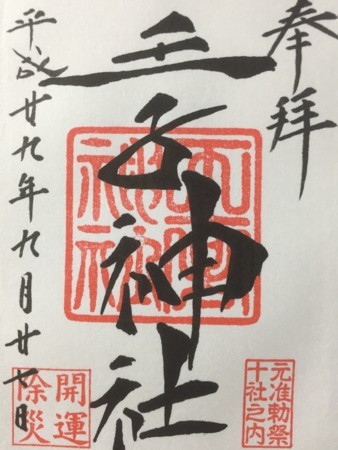 奉拝
王子神社
平成廿九年九月廿七日
元准勅祭
十社之内
開運
除災